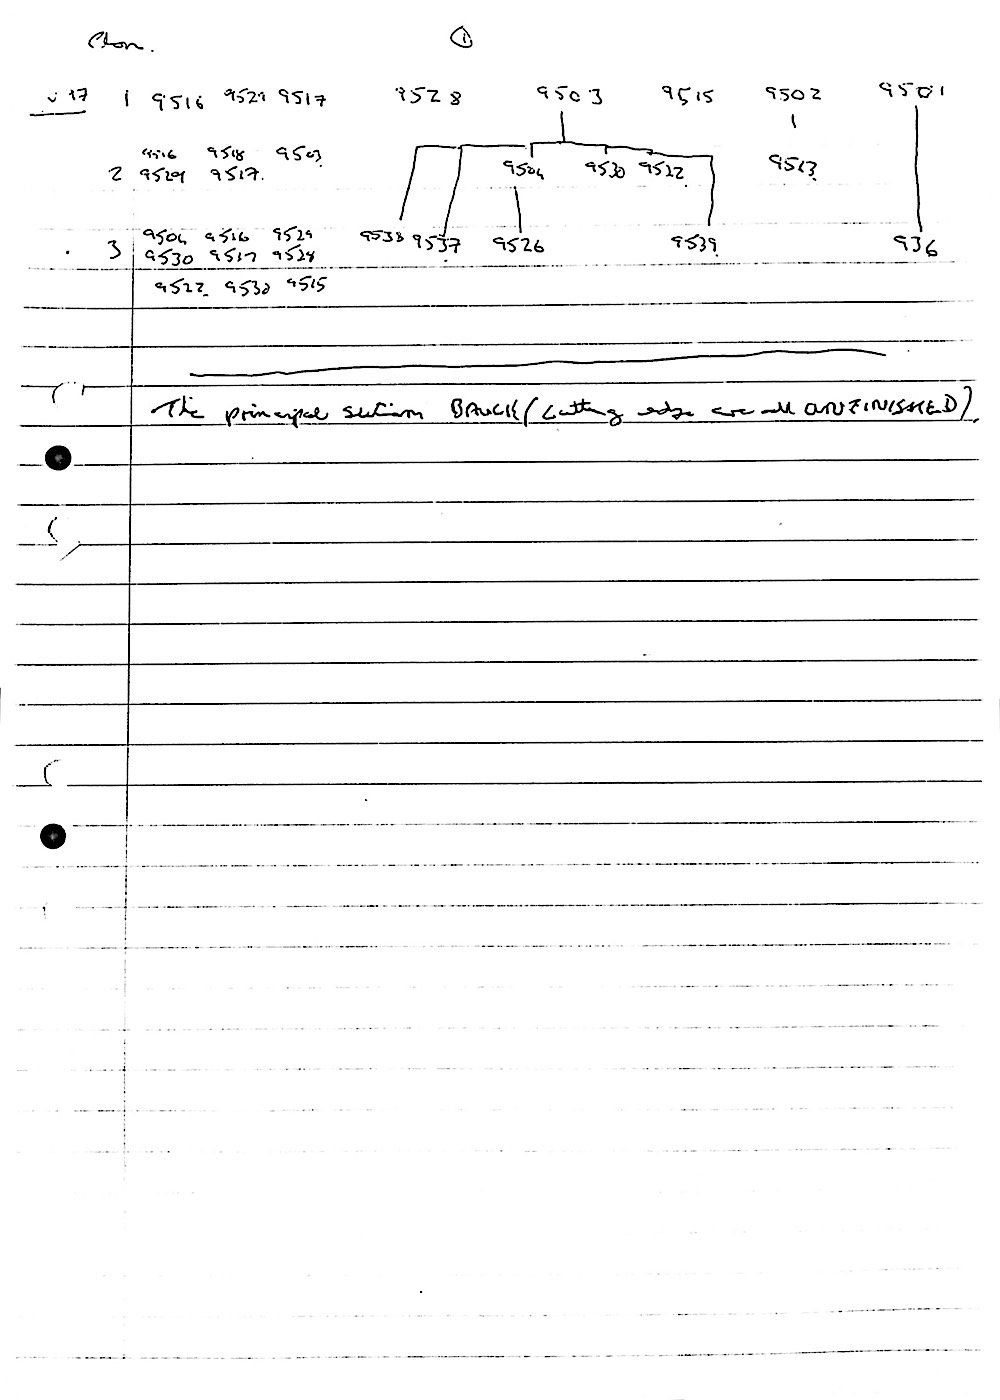 Plan. ①
17 1 9516 9529 9517 9528 9503 9515 9502 9501
9516 9518 9503
2 9529 9517. 9504 9530 9522 9513
3 9504 9516 9529 9538 9537 9526 9539 936
9530 9517 9528
9522 9530 9515
The principal section (cutting edge are all UNFINISHED)